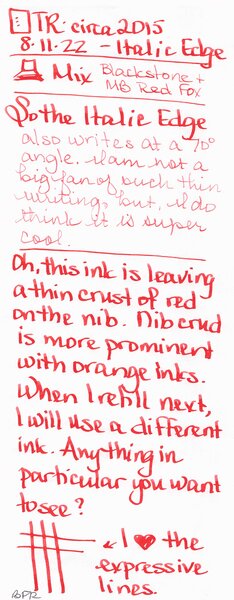 TR: circa 2015
8·11·22 - Italic Edge
Mix Blackstone +
MB Red Fox
So the Italic Edge
also writes at a 70°
angle. I am not a
big fan of such thin
writing, but, I do
think it is super
cool.
Oh, this ink is leaving
a thin crust of red
on the nib. Nib crud
is more prominent
with orange inks.
When I refill next,
I will use a different
ink. Anything in
particular you want
to see?
← I ♥ the
expressive
lines.